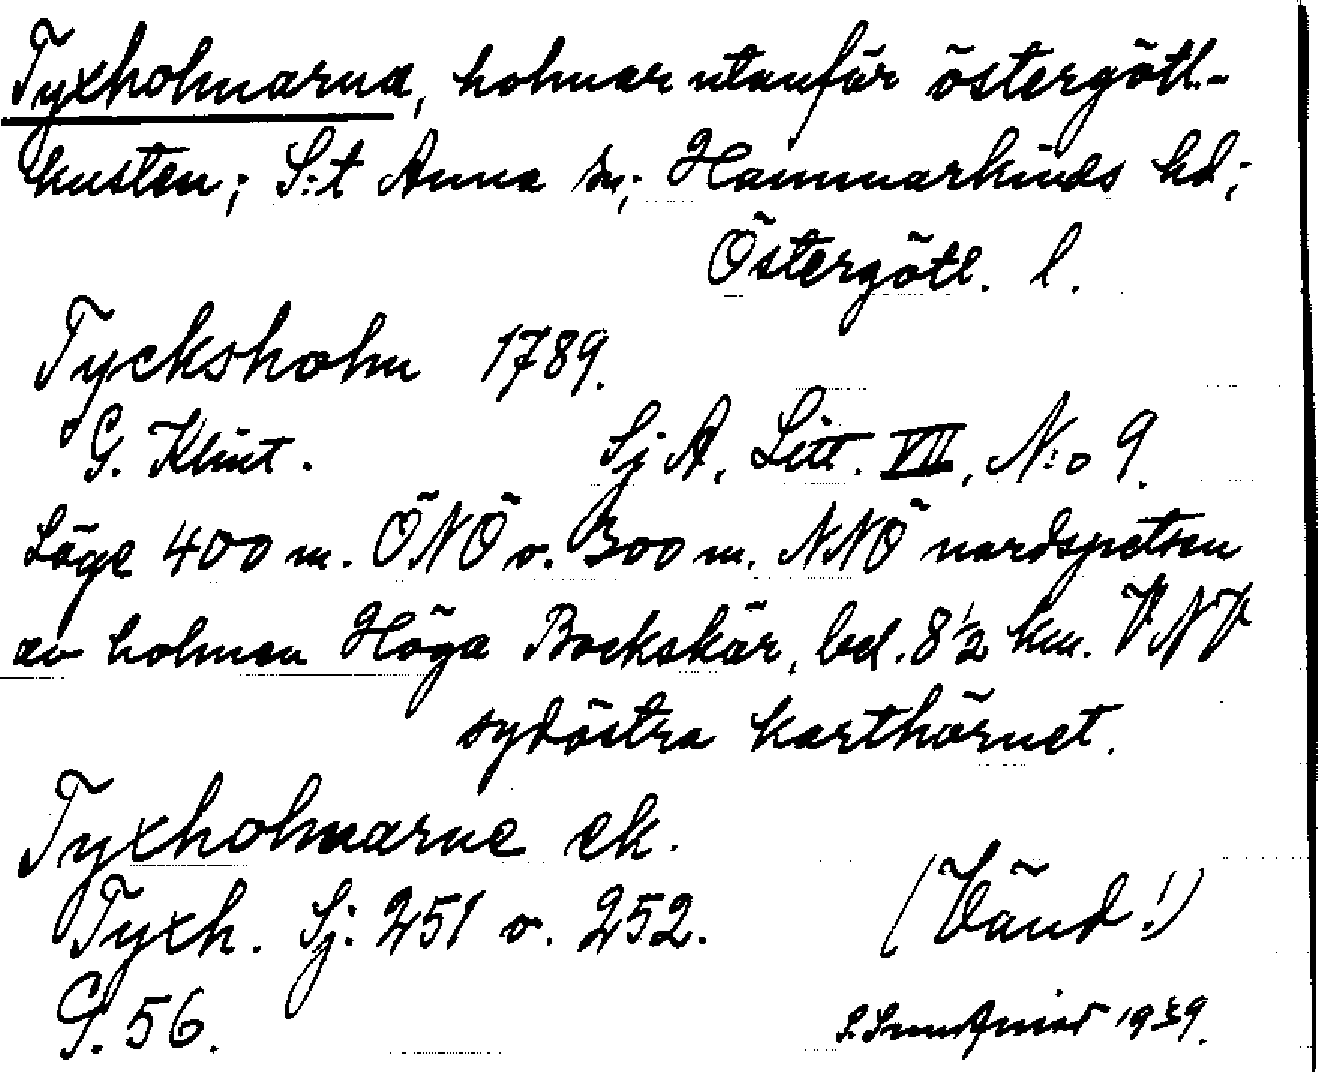 Tyxholmarna, holmar utanför östergötl.-
kusten; S:t Anna sn; Hammarkinds hd;
Östergötl. l.
Tycksholm 1789.
G. Klint. Sj A, Litt. VII, N:o 9.
Läge 400 m. ÖNÖ o. 300 m. NNÖ nordspetsen
av holmen Höga Bockskär, bel. 8 1/2 km. VNV
sydöstra karthörnet.
Tyxholmarne ek.
Tyxh. Sj. 251 o. 252.
(Vänd!)
G. 56.
1939.